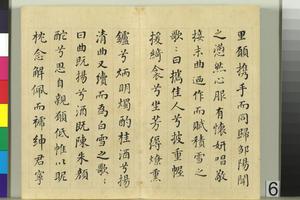 里願携手而同歸鄒陽聞
之懣然心服有懐妍唱敬
接末曲迺作而賦積雪之
歌〻曰攜佳人兮披重幄
援綺衾兮坐芳縟燎熏
鑪兮炳明燭酌桂酒兮揚
清曲又續而為白雪之歌〻
曰曲既揚兮酒既陳朱顔
酡兮思自親願低帷以昵
枕念解佩而褫紳君寧
6